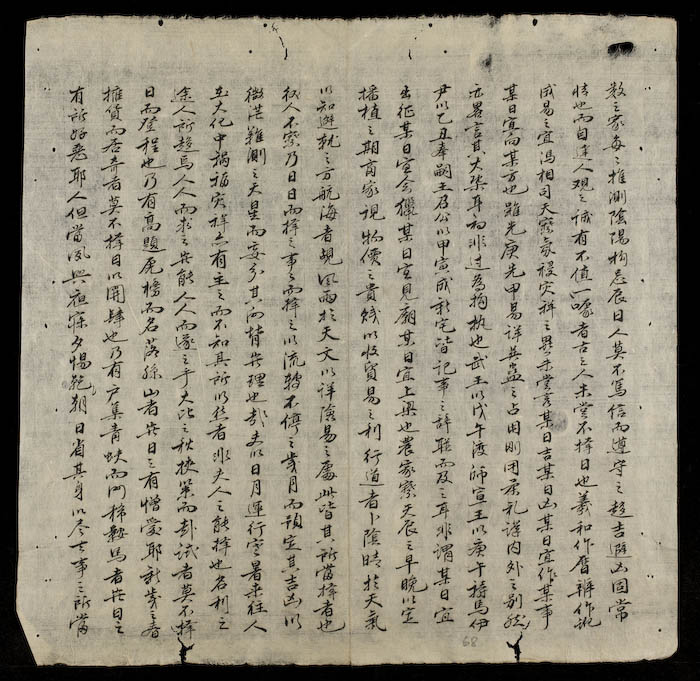 數之家每每推測陰陽拘忌辰日人莫不篤信而遵守之趨吉避凶固常
情也而自達人觀之誠有不值一喙者古之人未嘗不擇日也羲和作曆
成易之宜馮相司天察祲災祥之異未嘗言某日吉某日凶某日宜作某事
某日宜向某方也雖先庚先甲易詳其蠱之占用剛用柔礼謹内外之別然
亦畧言其大槩耳初非过為拘执也武王以戊午渡師宣王以庚午祷馬伊
尹以乙丑奉嗣王召公以甲寅成新宅皆記事之辞联而及之耳非謂某日宜
出征某日宜会獵某日宜見廟某日宜上梁也農家察天辰之早晚以定
播植之期商家視物價之貴賤以收貿易之利行道者卜陰晴於天氣
以知避就之方航海者覘風雨於天文以詳濟易之處此皆其所當擇者也
人不察乃日日而擇之事事而擇之以流轉不停之歲月而預定其吉凶以
微茫難測之天星而妄分其向背無理也彭夫以日月運行寒暑来往人
在大化中禍福災祥亦有主之而不知其所以然者非夫人之能擇也名利之
途人所趨焉人人而求之無能人人而遂之乎大比之秋挾策而赴試者莫不擇
日而登程也乃有高題虎榜而名落孫山者無日之有憎愛耶新歲之春
擁貨而居奇者莫不擇日以開肆也乃有戶集青蚨而門稀鞍馬者無日之
有所好惡耶人但當夙興夜寐夕惕乾朝日省其身以尽吾事之所當